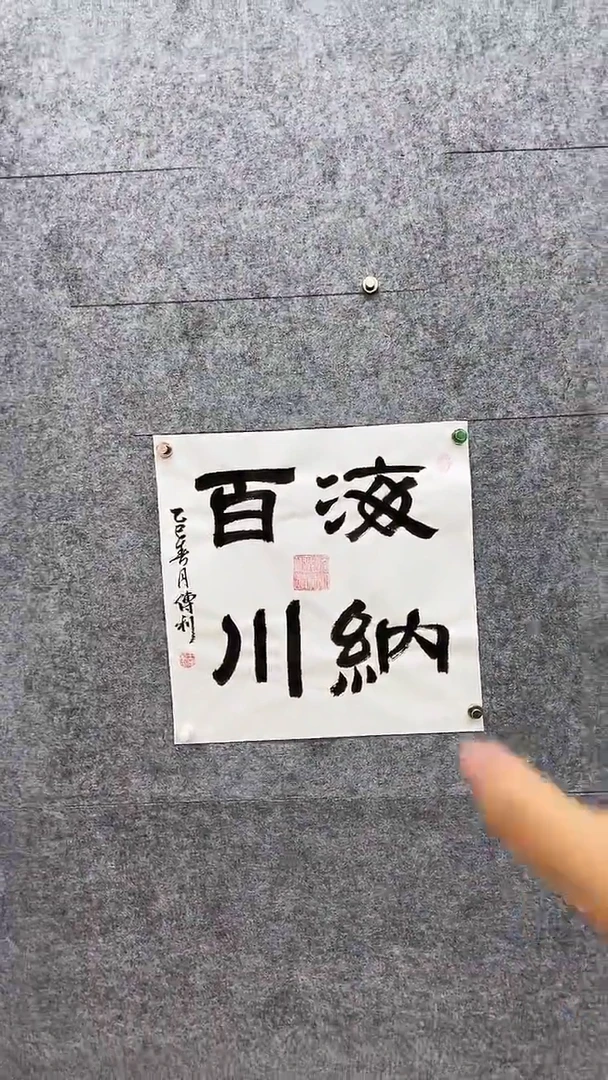 海納
百川
乙巳春月傳利